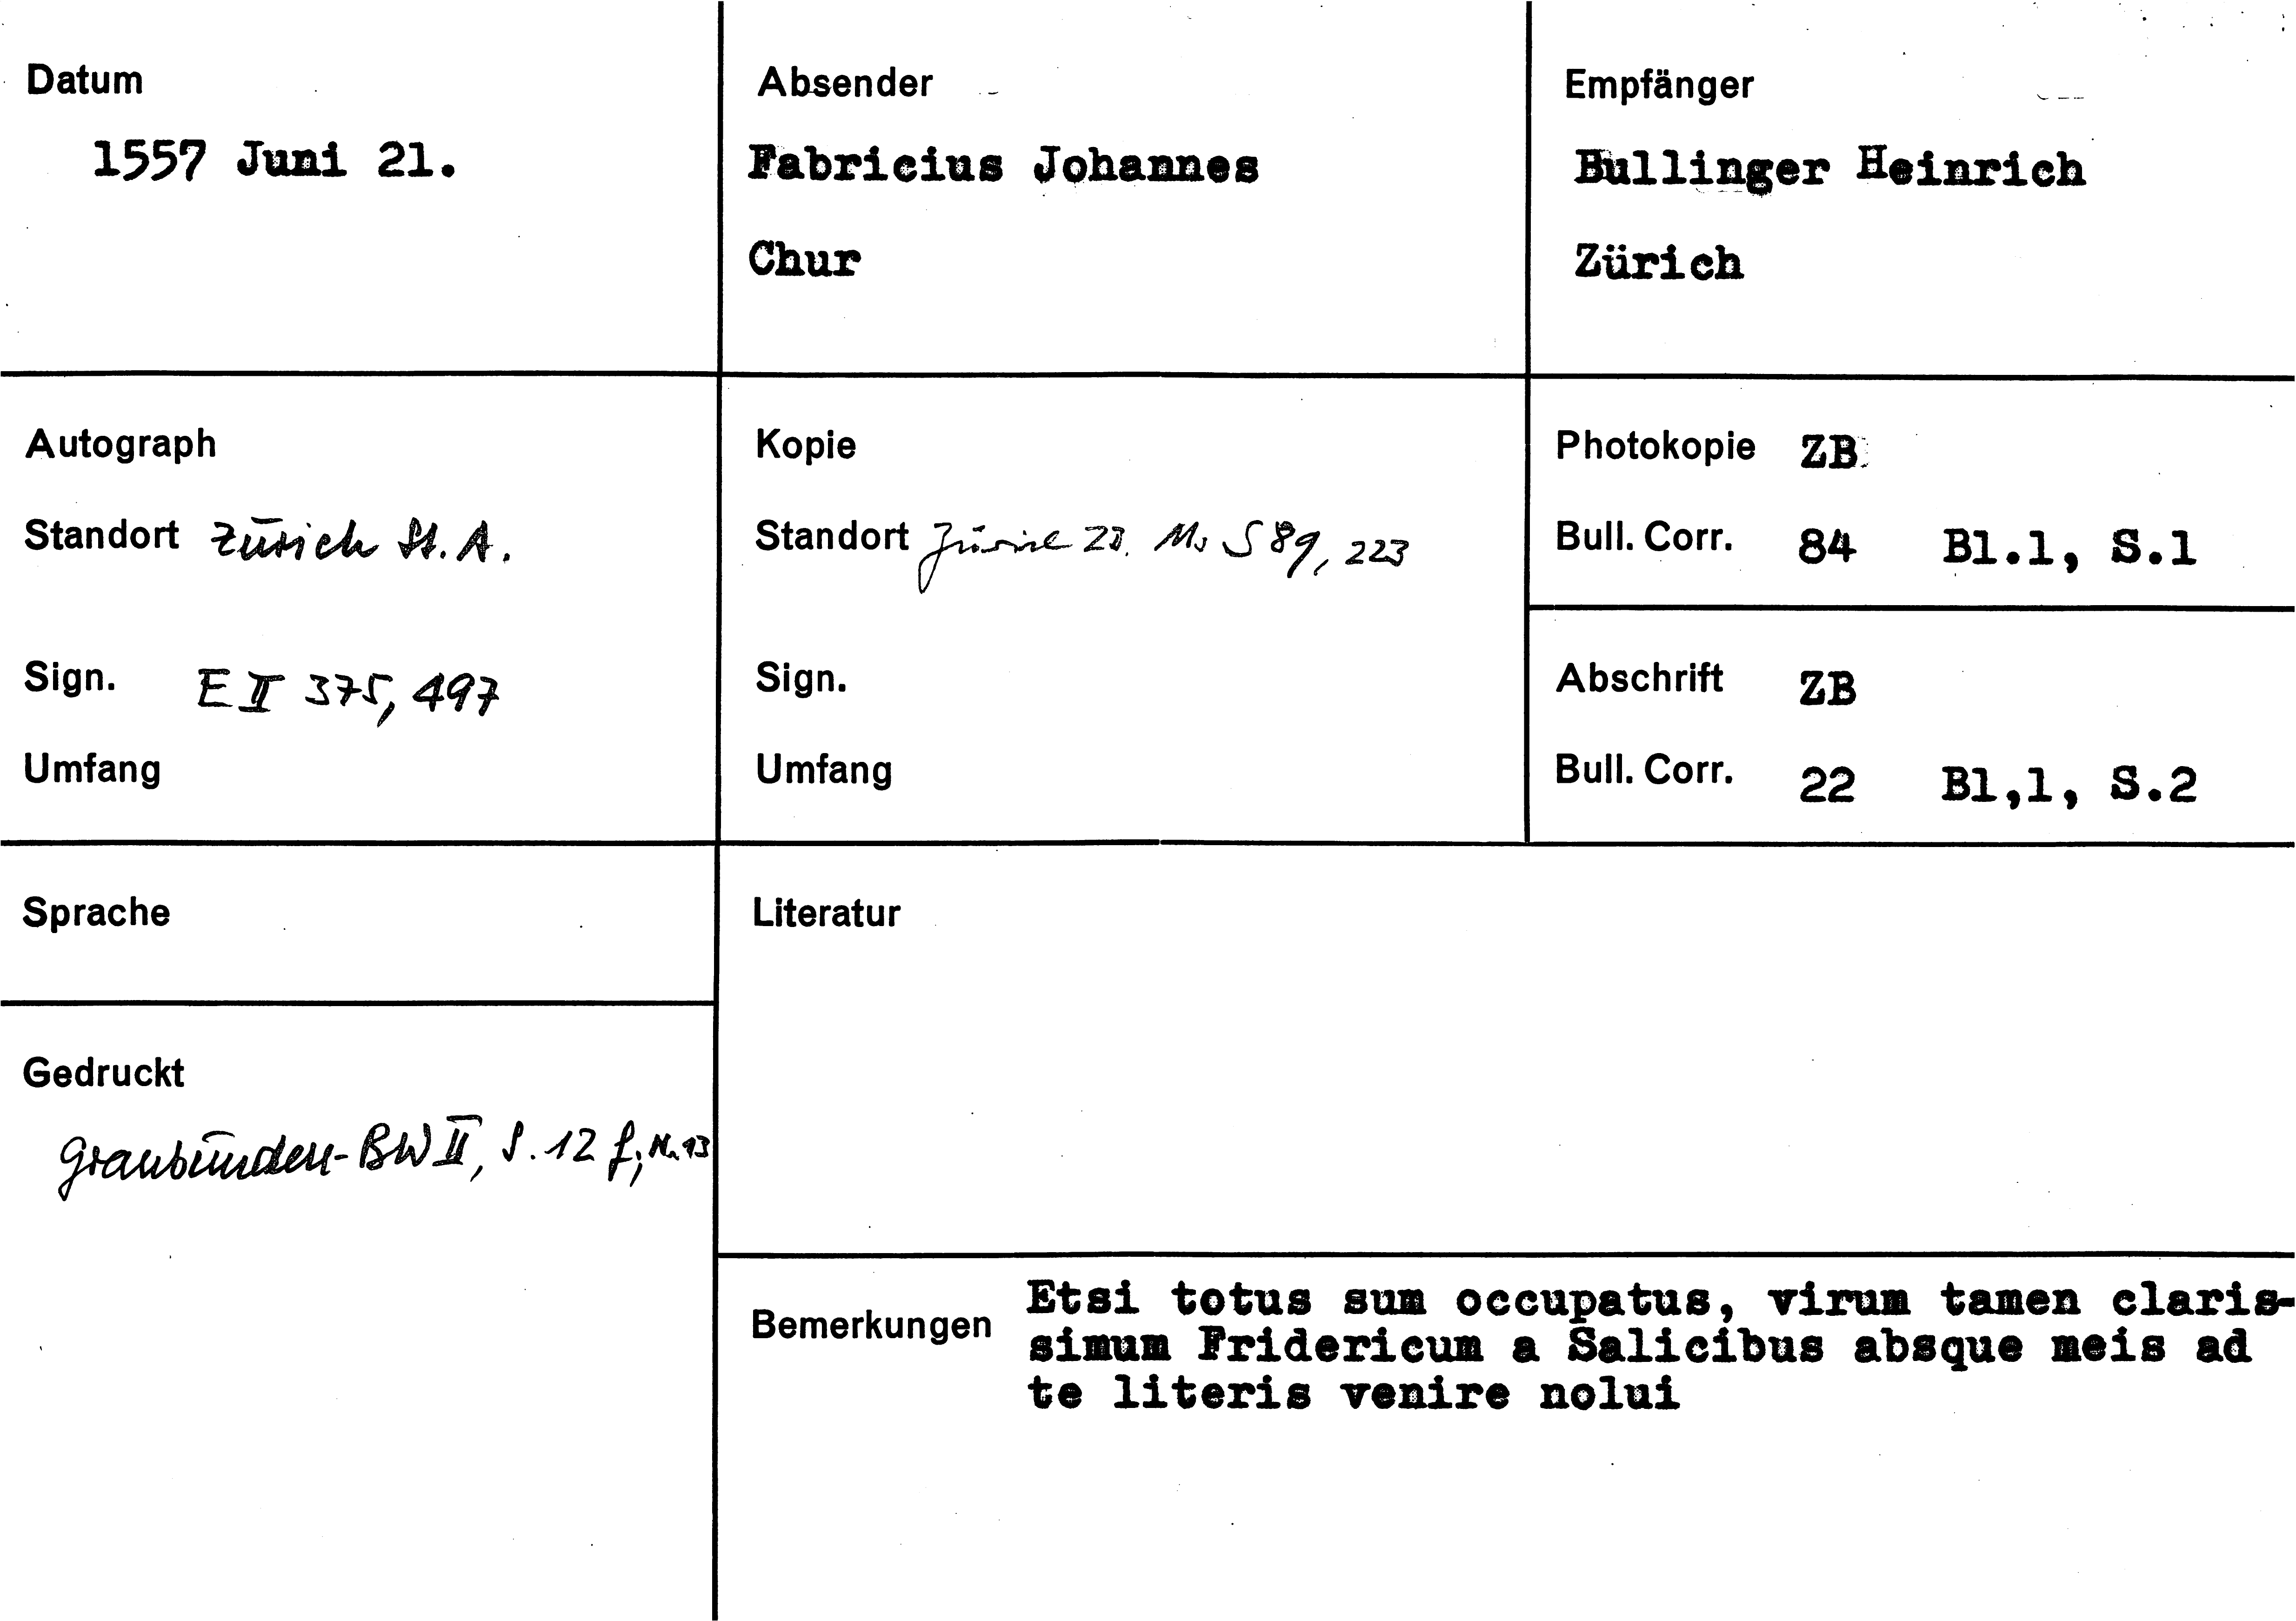 Datum
1557 Juni 21.
Absender
Fabricius Johannes
Chur
Empfänger
Bullinger Heinrich
Zürich
Autograph
Standort Zürich St. A.
Sign. E II 375, 497
Umfang
Kopie
Standort Zürich ZB. Ms S 89, 223
Sign.
Umfang
Photokopie ZB
Bull. Corr. 84 Bl.1, S.1
Abschrift ZB
Bull. Corr. 22 Bl,1, S.2
Sprache
Gedruckt
Graubünden-BW II, S. 12 f; Nr. 13
Literatur
Bemerkungen
Etsi totus sum occupatus, virum tamen claris-
simum Fridericum a Salicibus absque meis ad
te literis venire nolui